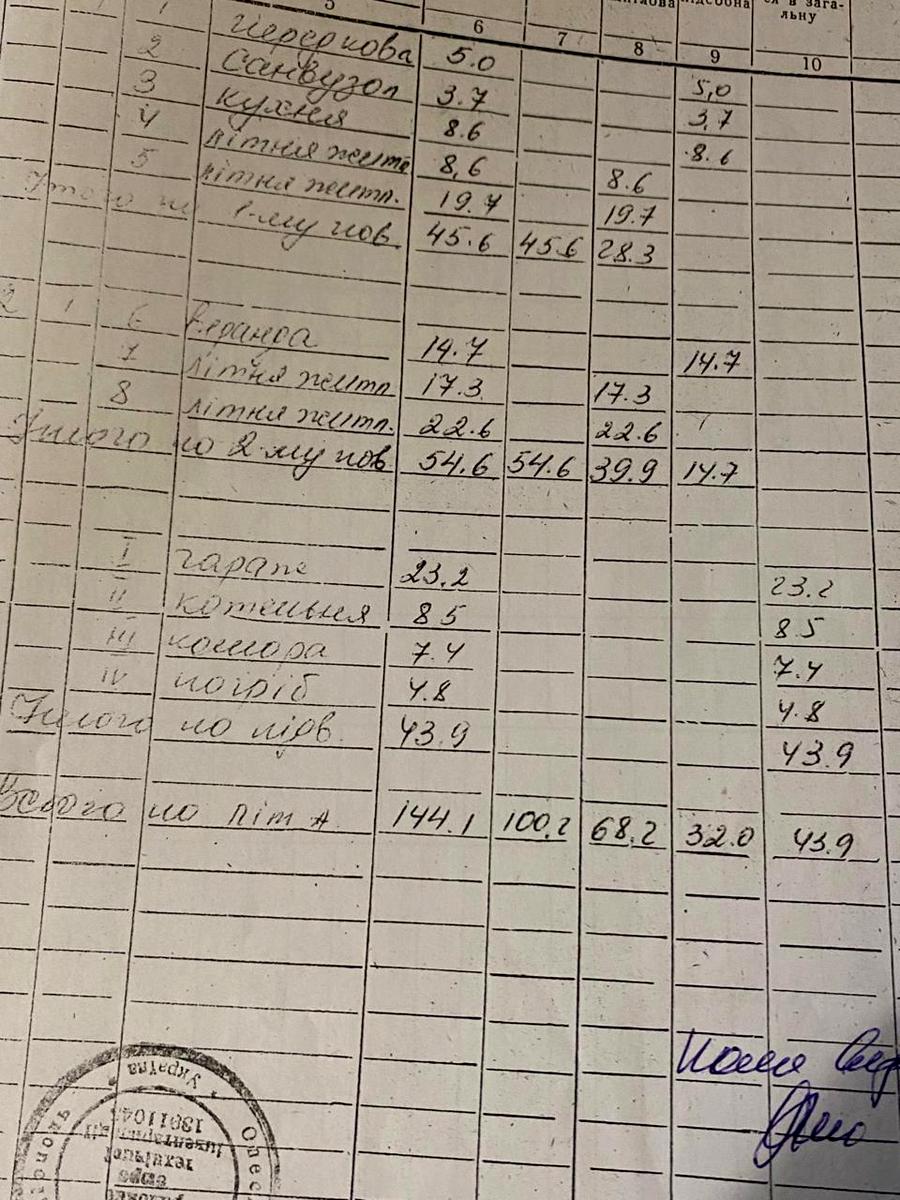 ся в зага-
льну
5 6 7 8 9 10
1
2 санвузол 5.0 5,0
3 кухня 3.7 3,7
4 літня житл 8.6 8.6
5 літня житл. 8,6 8.6
19.7 19.7
1-му пов. 45.6 45.6 28.3
2 1 6 веранда 14.7 14.7
7 літня житл 17.3 17.3
8 літня житл. 22.6 22.6
по 2-му пов 54.6 54.6 39.9 14.7
I гараж 23.2 23.2
II котельня 8.5 8.5
III комора 7.4 7.4
IV погріб 4.8 4.8
по підв. 43.9 43.9
Всього по літ А 144.1 100,2 68,2 32.0 43.9
Україна
Одес
інвентаризації
технічної
бюро